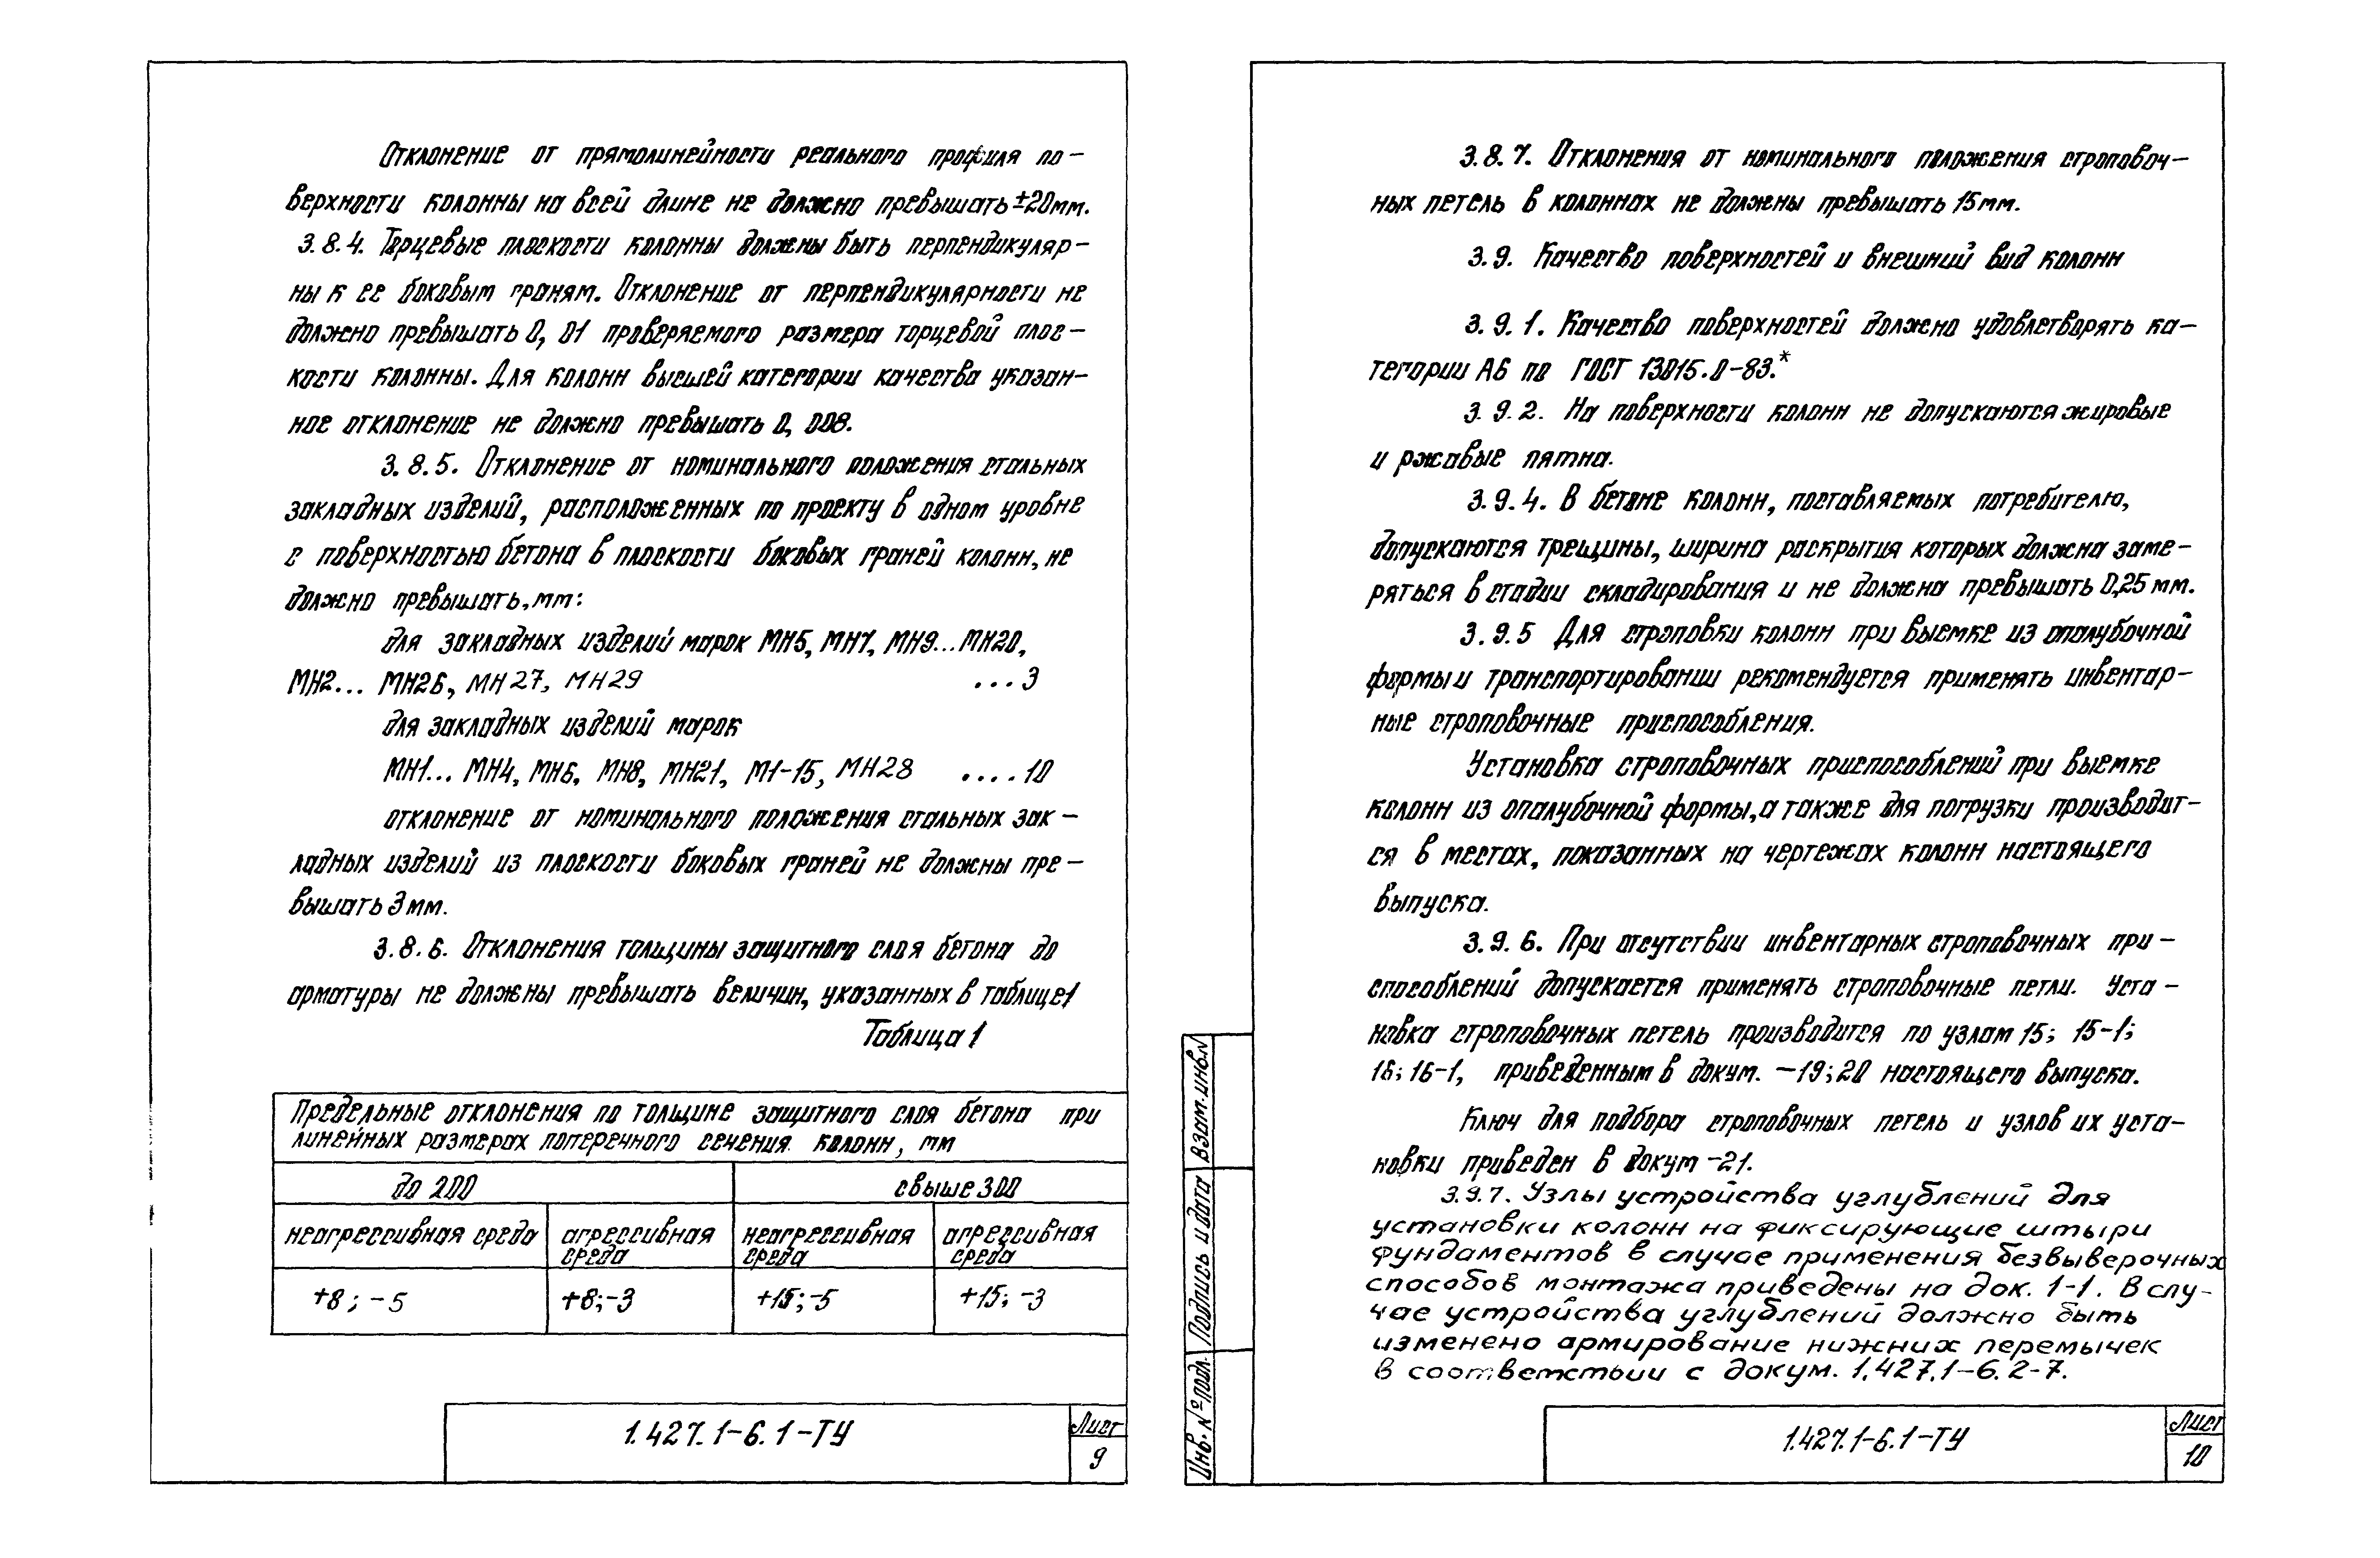 Отклонение от прямолинейности реального профиля по-
верхности колонны на всей длине не должно превышать ±20мм.
3.8.4. Торцевые плоскости колонны должны быть перпендикуляр-
ны к ее боковым граням. Отклонение от перпендикулярности не
должно превышать 0,01 проверяемого размера торцевой плос-
кости колонны. Для колонн высшей категории качества указан-
ное отклонение не должно превышать 0,008.
3.8.5. Отклонение от номинального положения стальных
закладных изделий, расположенных по проекту в одном уровне
с поверхностью бетона в плоскости боковых граней колонн, не
должно превышать, мм:
для закладных изделий марок МН5, МН7, МН9...МН20,
МН2... МН26, МН27, МН29 ...3
для закладных изделий марок
МН1... МН4, МН6, МН8, МН21, М1-15, МН28 ....10
отклонение от номинального положения стальных зак-
ладных изделий из плоскости боковых граней не должны пре-
вышать 3мм.
3.8.6. Отклонения толщины защитного слоя бетона до
арматуры не должны превышать величин, указанных в таблице1
Таблица 1
Предельные отклонения по толщине защитного слоя бетона при
линейных размерах поперечного сечения колонн, мм
до 200 свыше 300
неагрессивная среда агрессивная неагрессивная агрессивная
среда среда среда
+8; -5 +8;-3 +15;-5 +15; -3
1.427.1-6.1-ТУ
Лист
9
3.8.7. Отклонения от номинального положения строповоч-
ных петель в колоннах не должны превышать 15мм.
3.9. Качество поверхностей и внешний вид колонн
3.9.1. Качество поверхностей должно удовлетворять ка-
тегории А6 по ГОСТ 13015.0-83.*
3.9.2. На поверхности колонн не допускаются жировые
и ржавые пятна.
3.9.4. В бетоне колонн, поставляемых потребителю,
допускаются трещины, ширина раскрытия которых должна заме-
ряться в стадии складирования и не должна превышать 0,25 мм.
3.9.5 Для строповки колонн при выемке из опалубочной
формы и транспортировании рекомендуется применять инвентар-
ные строповочные приспособления.
Установка строповочных приспособлений при выемке
колонн из опалубочной формы, а также для погрузки производит-
ся в местах, показанных на чертежах колонн настоящего
выпуска.
3.9.6. При отсутствии инвентарных строповочных при-
способлений допускается применять строповочные петли. Уста-
новка строповочных петель производится по узлам 15; 15-1;
16; 16-1, приведенным в докум. -19;20 настоящего выпуска.
Ключ для подбора строповочных петель и узлов их уста-
новки приведен в докум -21.
3.9.7. Узлы устройства углублений для
установки колонн на фиксирующие штыри
фундаментов в случае применения безвыверочных
способов монтажа приведены на док. 1-1. В слу-
чае устройства углублений должно быть
изменено армирование нижних перемычек
в соответствии с докум. 1.427.1-6.2-7.
Взам.инв.N
Подпись и дата
Инв. № подл.
1.427.1-6.1-ТУ
Лист
10